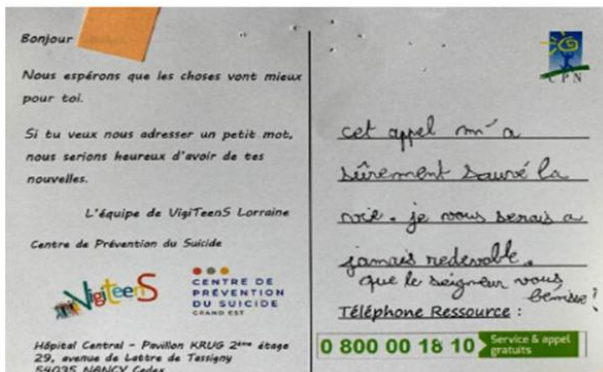 Bonjour
Nous espérons que les choses vont mieux
pour toi.
Si tu veux nous adresser un petit mot,
nous serions heureux d'avoir de tes
nouvelles.
L'équipe de VigiTeenS Lorraine
Centre de Prévention du Suicide
VigiteenS
CENTRE DE
PRÉVENTION
DU SUICIDE
GRAND EST
Hôpital Central - Pavillon KRUG 2ème étage
29, avenue de Lattre de Tassigny
54035 NANCY Cedex
CPN
cet appel m'a
sûrement sauvé la
vie. je vous serais a
jamais redevable.
que le seigneur vous
benisse!
Téléphone Ressource :
0 800 00 18 10
Service & appel
gratuits